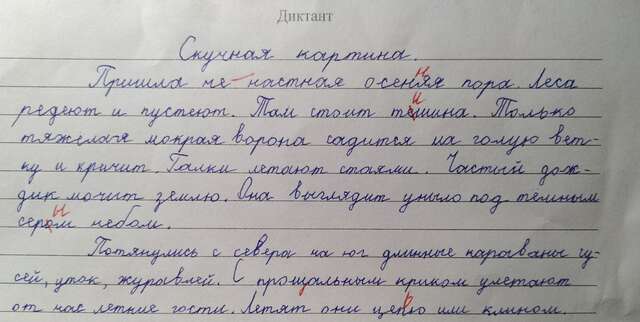 Диктант
Скучная картина.
Пришла не настная осенняя пора. Леса
редеют и пустеют. Там стоит тешина. Только
тяжелая мокрая ворона садится на голую вет-
ку и кричит. Галки летают стаями. Частый дож-
дик мочит землю. Она выглядит уныло под темным
сером небом.
Потянулись с севера на юг длинные караваны гу-
сей, уток, журавлей. С прощальным криком улетают
от нас летние гости. Летят они цепю или клином.